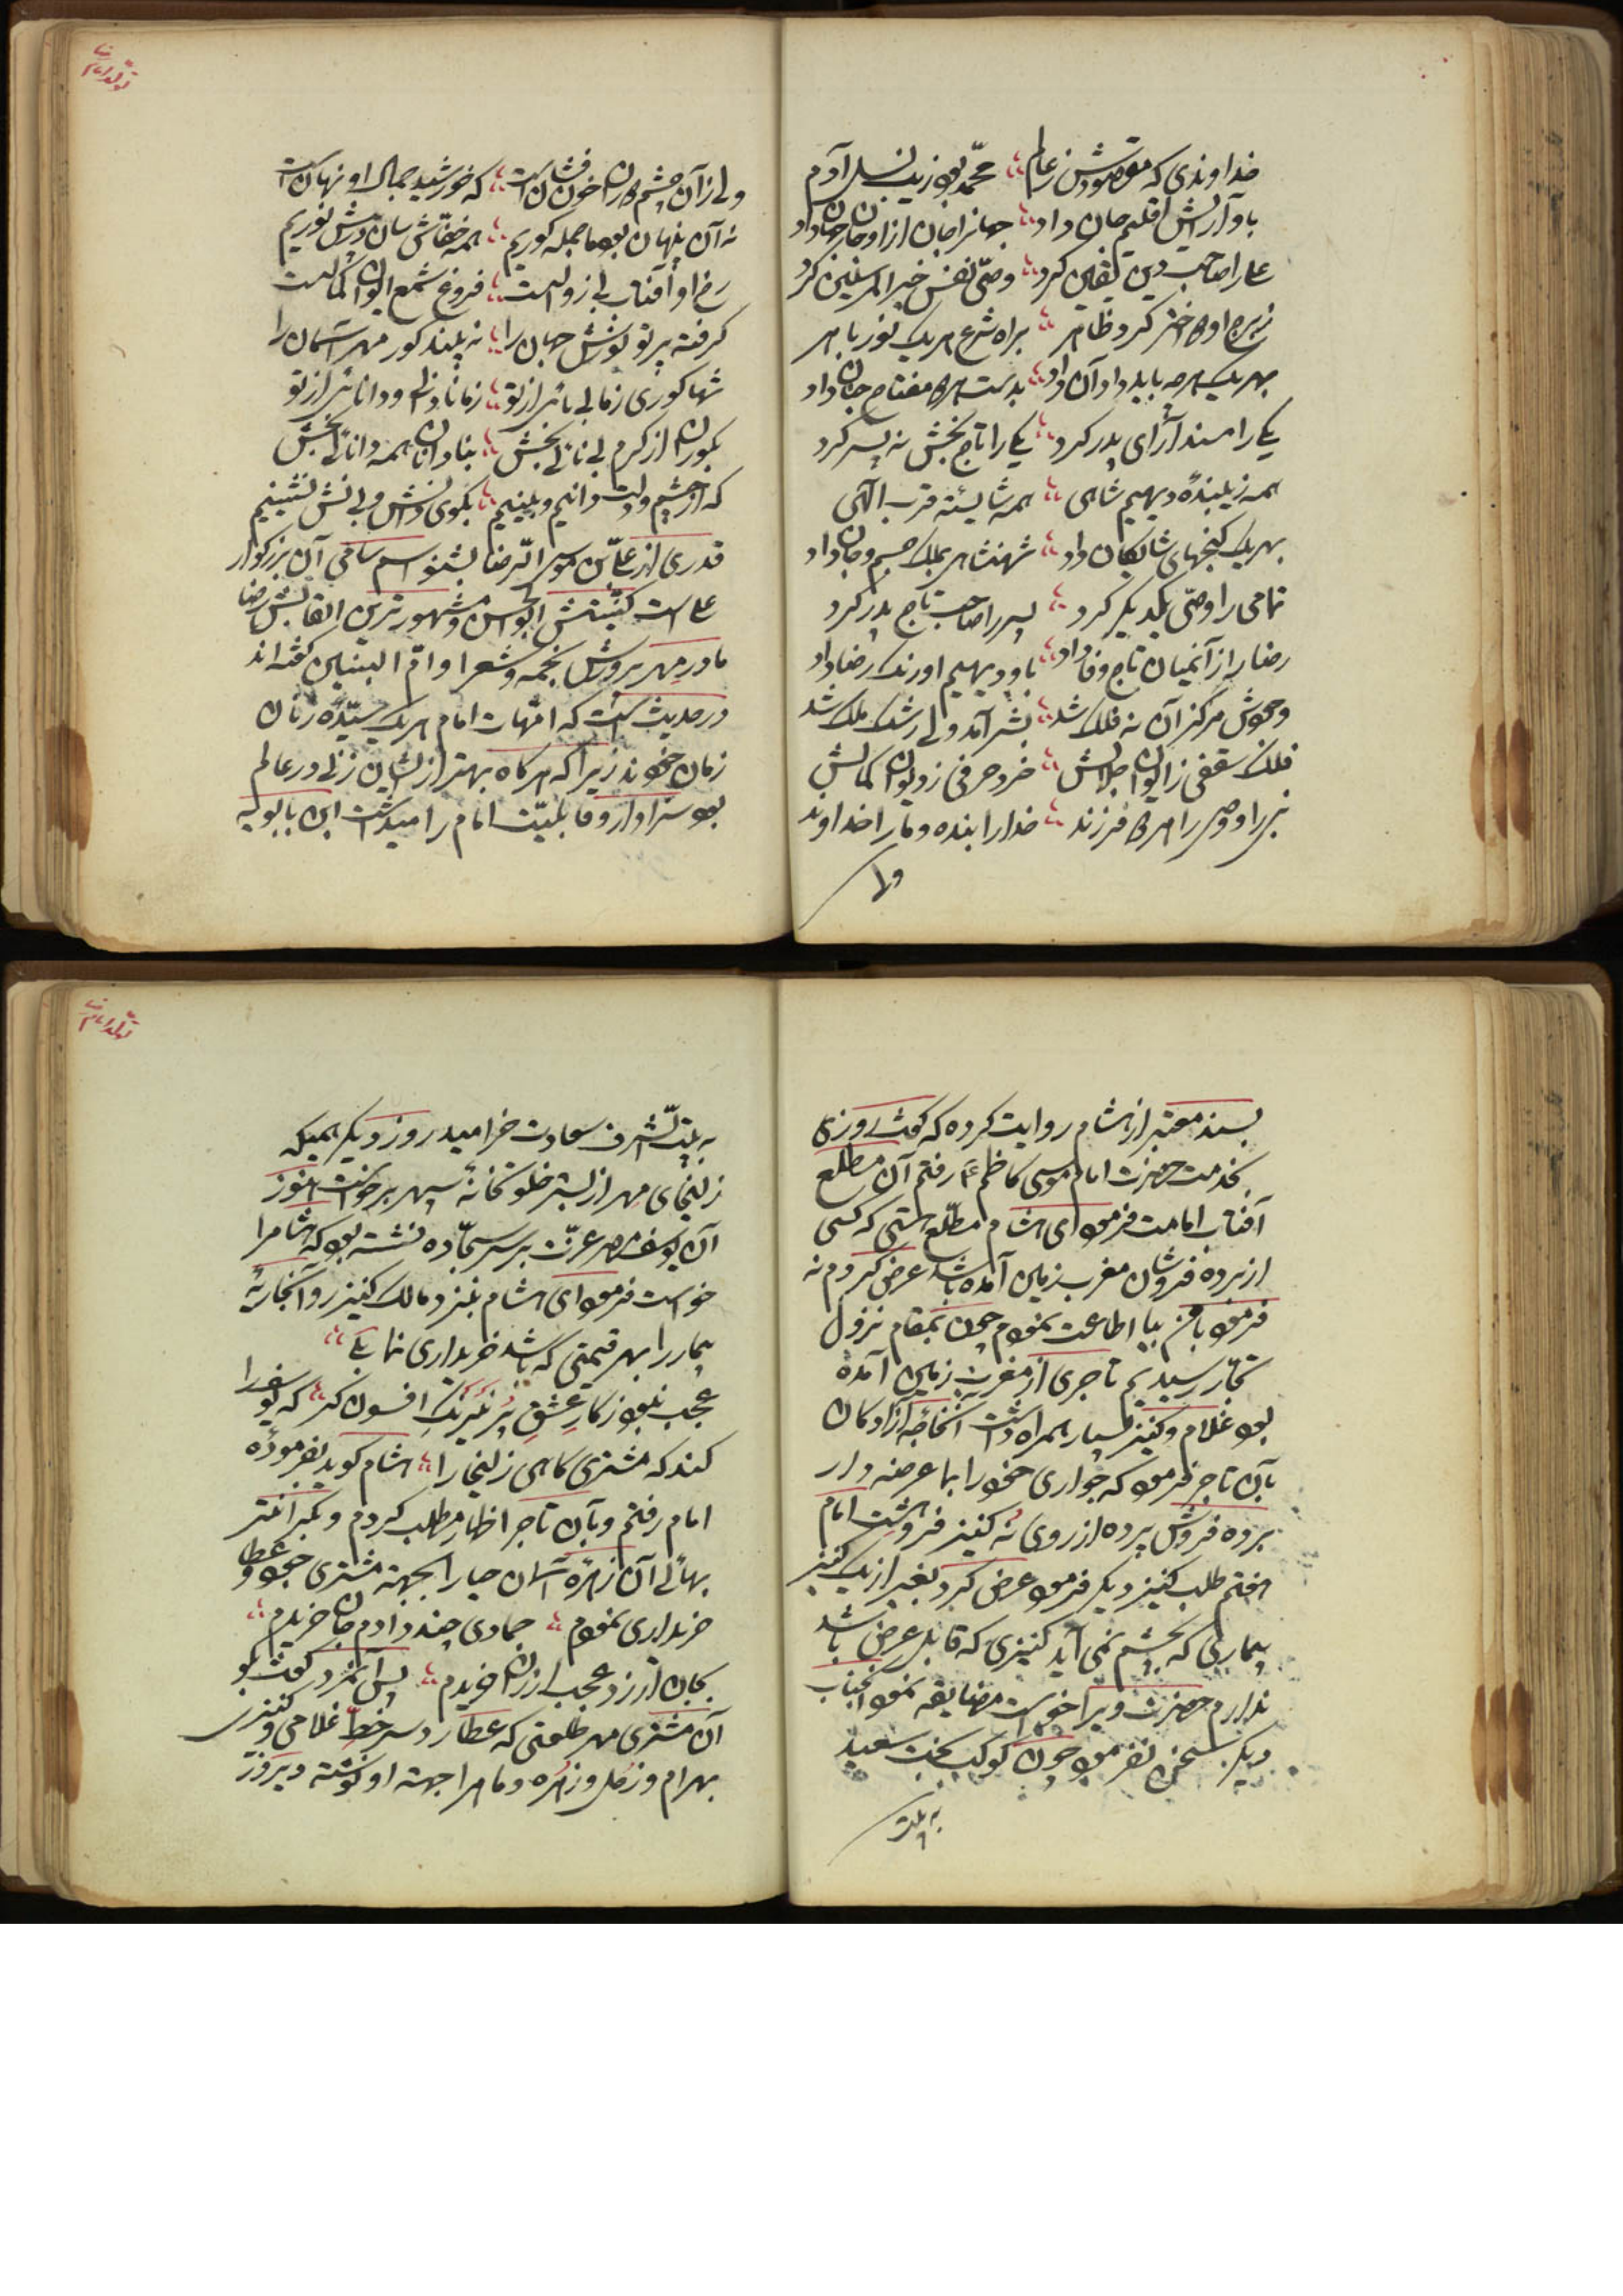 خداوندی که مقصودش ز عالم محمد بود زیب نسل آدم
باو آرایش اقلیم جان داد جهانرا جان از او جان را جهان داد
علی را صاحب دین یقین کرد وصی نفس خیر المرسلین کرد
ز برج او ده اختر کرد ظاهر براه شرع هر یک نور باهر
بهر یک هر چه باید داد آن داد بدست هر ده مفتاح جهان داد
یکی را مسند آرای پدر کرد یکی را تاج بخش نه پسر کرد
همه زیبندهٔ دیهیم شاهی همه شایستهٔ قرب الهی
بهر یک گنجهای شایگان داد شهنشاهی بملک جسم و جان داد
تمامی را وصی یکدیگر کرد پسر را صاحب تاج پدر کرد
رضا را از آنمیان تاج وفا داد باو دیهیم اورنگ رضا داد
وجودش مرکز آن نه فلک شد بشر آمد ولی رشک ملک شد
فلک سقفی ز ایوان جلالش خرد حرفی ز دیوان کمالش
نبی را و وصی را هر ده فرزند خدا را بنده و ما را خداوند
ولی
تولد امام رضا
ولی زآن چشم خون فشانست که خورشید جمال او نهانست
نه آن پنهان بود ما جمله کوریم همه خفاش سان دشمن نوریم
رخ او آفتاب بی زوالست فروغ شمع ایوان کمالست
گرفته پرتو نورش جهان را نه بیند کور مهر آسمان را
شها کوری ز ما بینائی از تو ز ما نادانی و دانائی از تو
بکوران از کرم بینائی بخش بنادانان همه دانائی بخش
که از چشم و دلت دانیم و بینیم بکوی دانش و بینش نشینیم
قدری از علی بن موسی الرضا بشنو اسم سامی آن بزرگوار
علی است کنیتش ابوالحسن و مشهورترین القابش رضا
مادر مهر پرورش نجمه و شعرا و ام البنین گفته اند
در حدیث است که امهات امام هر یک سیدهٔ زنان
زمان خودند زیرا که هر گاه بهتر از ایشان زنی در عالم
بود سزاوار و قابلیت امام را میداشت ابن بابویه
بسند معتبر از هشام روایت کرده که گفت روزی
بخدمت حضرت امام موسی کاظم ع رفتم آن مطلع
آفتاب امامت فرمود ای هشام مطلع هستی که کسی
از برده فروشان مغرب زمین آمده باشد عرض کردم نه
فرمود با من بیا اطاعت نمودم چون بمقام نزول
تجار رسیدیم تاجری از مغرب زمین آمده
بود غلام و کنیز بسیار همراه داشت آنخواجه آزادگان
بآن تاجر فرمود که جواری خود را بما عرضه دار
برده فروش پرده از روی نه کنیز فروهشت امام
هفتم طلب کنیز دیگر فرمود عرض کرد بغیر از یک کنیز
بیماری که بچشم نمی آید کنیزی که قابل عرض باشد
ندارم حضرت ویرا خواست مضایقه نمود آنجناب
دیگر سخن نفرمود چون کوکب بخت سعید
به بیت
تولد امام رضا
به بیت الشرف سعادت خرامید روز دیگر همینکه
زلیخای مهر از بستر خلوتخانهٔ سپهر برخواست هنوز
آن یوسف مصر عزت بر سر سجاده نشسته بود که هشام را
خواست فرمود ای هشام بنزد مالک کنیز رو آنجاریهٔ
بیمار را بهر قیمتی که باشد خریداری نمایی
عجب نبود ز کار عشق پر نیرنگ افسون گر که یوسف را
کند که مشتری گاهی زلیخا را هشام گوید بفرمودهٔ
امام رفتم و بآن تاجر اظهار مطلب کردم و بگرانتر
بهائی آن زهرهٔ آسمان حیا را بجهته مشتری جود و عطا
خریداری نمودم جمادی چند دادم جان خریدم
بجان ارزد عجب ارزان خریدم پس آنمرد گفت بگو
آن مشتری مهر طلعتی که عطارد سر خط غلامی و کنیزی
بهرام و زحل و زهره و ماه را جهته او نوشته دیروز